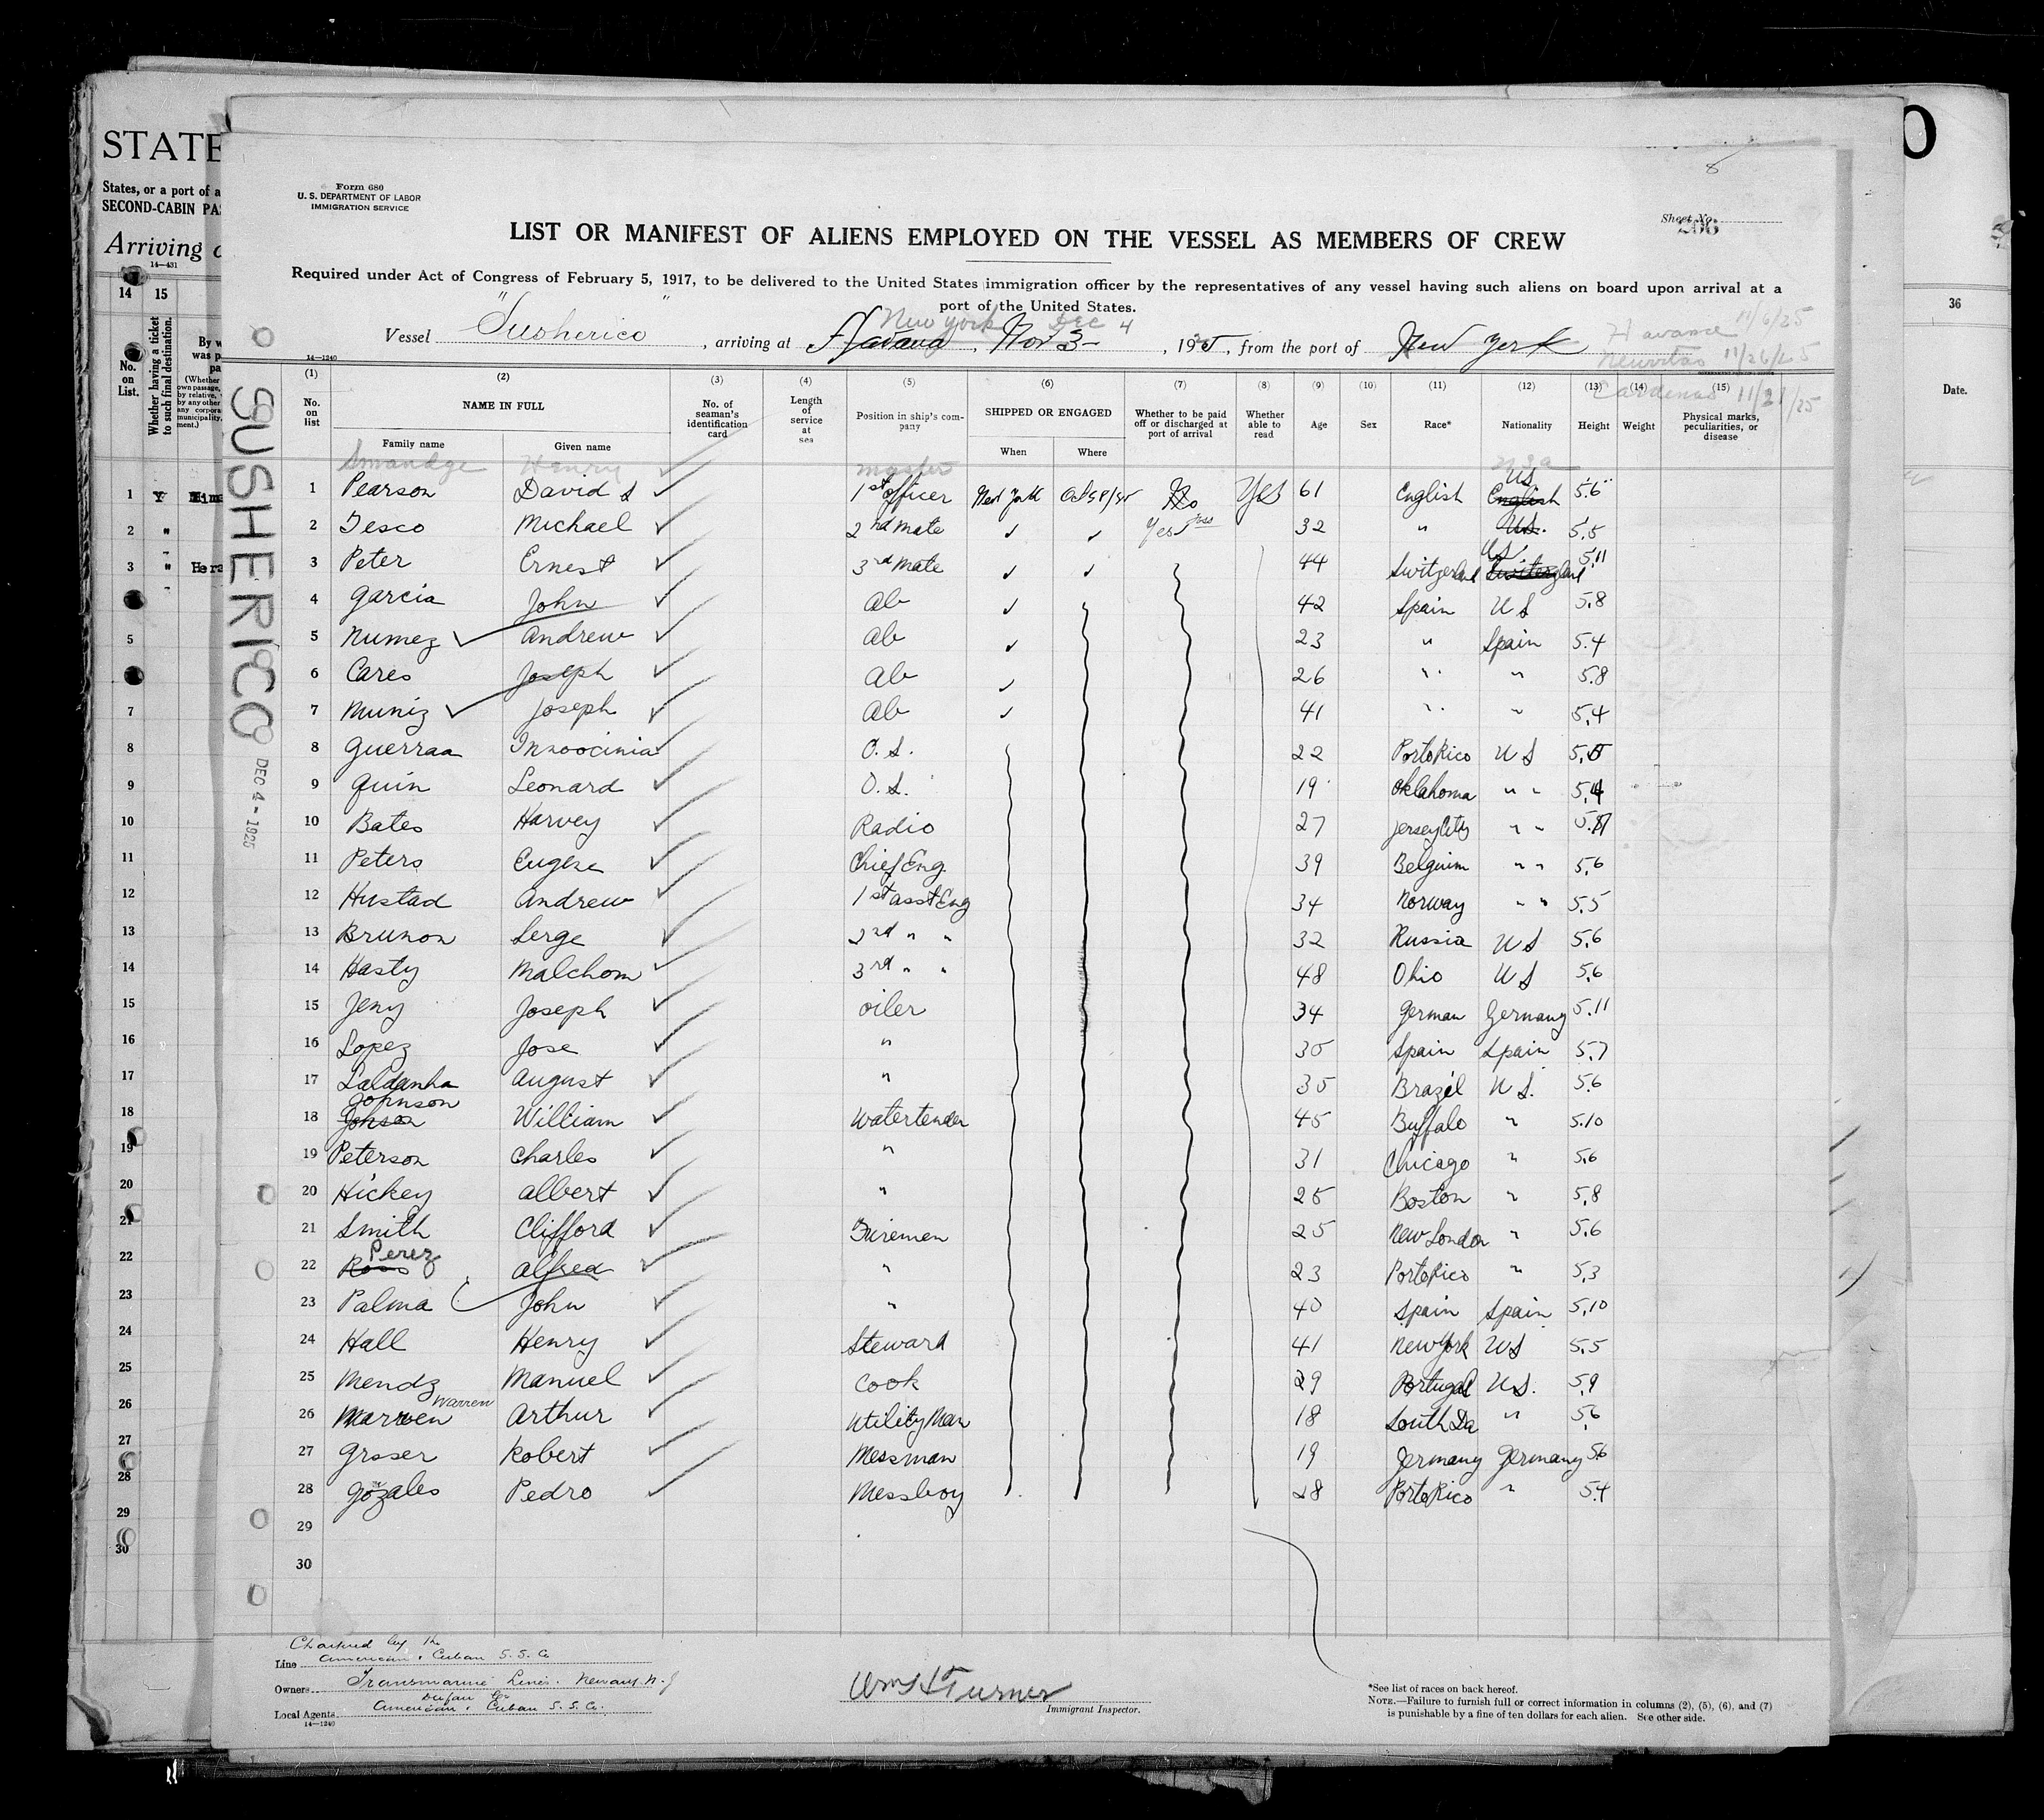 STATE
States, or a port of a
SECOND-CABIN PA
Arriving
14—431
14 15
No. on List.
Whether having a ticket to such final destination.
36
Date.
8
Form 680
U. S. DEPARTMENT OF LABOR
IMMIGRATION SERVICE
Sheet No.
206
LIST OR MANIFEST OF ALIENS EMPLOYED ON THE VESSEL AS MEMBERS OF CREW
Required under Act of Congress of February 5, 1917, to be delivered to the United States immigration officer by the representatives of any vessel having such aliens on board upon arrival at a
port of the United States.
New York Dec 4
Vessel "Susherico", arriving at Havana, Nov 3-, 1925, from the port of New York
Havana 11/6/25
Neuvitas 11/26/25
Cardenas 11/27/25
14—1240
SUSHERICO DEC 4 - 1925
(1) (2) (3) (4) (5) (6) (7) (8) (9) (10) (11) (12) (13) (14) (15)
No. on list NAME IN FULL No. of seaman's identification card Length of service at sea Position in ship's company SHIPPED OR ENGAGED Whether to be paid off or discharged at port of arrival Whether able to read Age Sex Race* Nationality Height Weight Physical marks, peculiarities, or disease
Family name Given name When Where
Swandge Henry master USA
1 Pearson David S 1st officer New York No Yes 61 English US English 5.6
2 Tesco Michael 2nd mate Yes 32 " US. 5,5
3 Peter Ernest 3rd mate 44 Switzerland US. Switerzland 5.11
4 Garcia John Ab 42 Spain US 5.8
5 Numez Andrew Ab 23 " Spain 5.4
6 Cares Joseph Ab 26 " " 5.8
7 Muniz Joseph Ab 41 " " 5,4
8 Guerraa Innoocinia O. S. 22 PortoRico US
9 Quin Leonard O. S. 19 Oklahoma " " 5,4
10 Bates Harvey Radio 27 Jersey City " "
11 Peters Eugene Chief Eng. 39 Belguim " " 5,6
12 Hustad Andrew 1st asst Eng 34 Norway " " 5.5
13 Brunon Serge 2nd " " 32 Russia US 5.6
14 Hasty Malchom 3rd " " 48 Ohio US 5.6
15 Jeny Joseph oiler 34 German Germany 5.11
16 Lopez Jose " 30 Spain Spain 5.7
17 Saldanha August " 35 Brazil US. 5.6
Johnson
18 Jonson William Watertender 45 Buffalo " 5.10
19 Peterson Charles " 31 Chicago " 5.6
20 Hickey Albert " 25 Boston " 5,8
21 Smith Clifford Firemen 25 New London " 5.6
Perez
22 Ross Alfred " 23 PortoRico " 5,3
23 Palma John " 40 Spain Spain 5,10
24 Hall Henry Steward 41 New York US 5.5
25 Mendz Manuel Cook 29 Portugal US. 5,9
Warren
26 Marrven Arthur Utility Man 18 South Da " 5,6
27 Groser Robert Messman 19 Jermany Germany 5.6
28 Gonzales Pedro Messboy 28 PortoRico " 5.4
29
30
Chartered by the
Line American & Cuban S. S. Co
Owners Transmarine Lines. Newark N. J
Dufau Co
Local Agents. American & Cuban S. S. Co.
14—1240
Wm H Turner
Immigrant Inspector.
*See list of races on back hereof.
NOTE.—Failure to furnish full or correct information in columns (2), (5), (6), and (7)
is punishable by a fine of ten dollars for each alien. See other side.